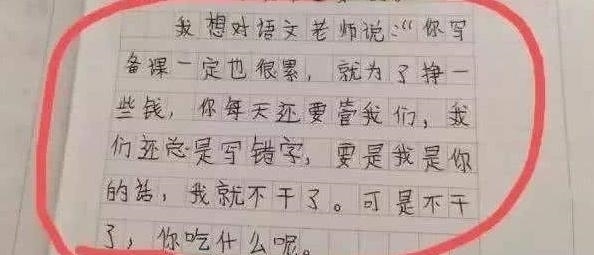 我想对语文老师说:“你写
备课一定也很累，就为了挣一
些钱，你每天还要管我们，我
们还总是写错字，要是我是你
的话，我就不干了。可是不干
了，你吃什么呢。